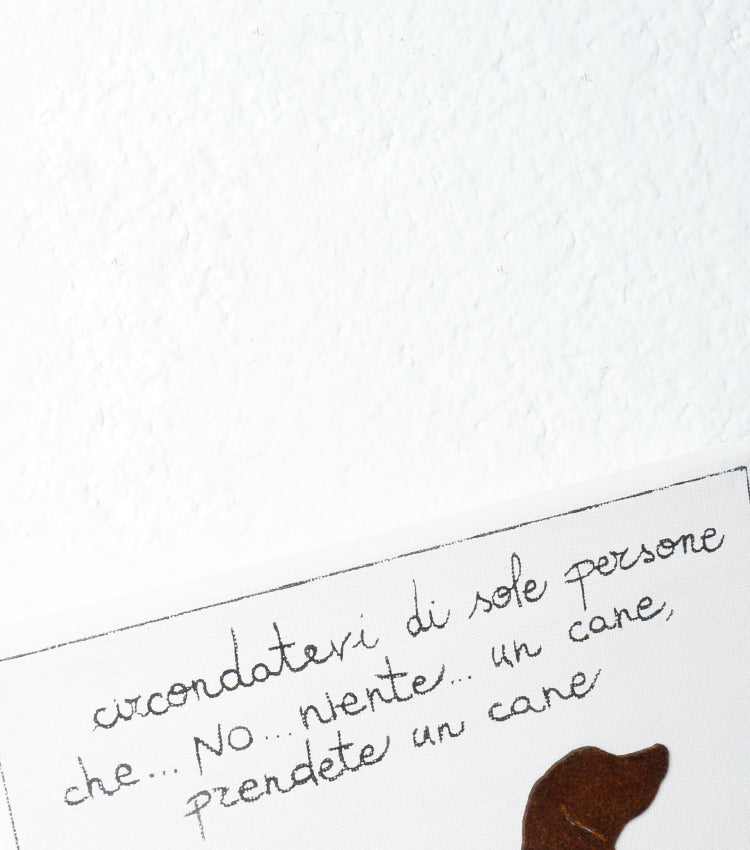 circondatevi di sole persone
che... NO... niente... un cane,
prendete un cane